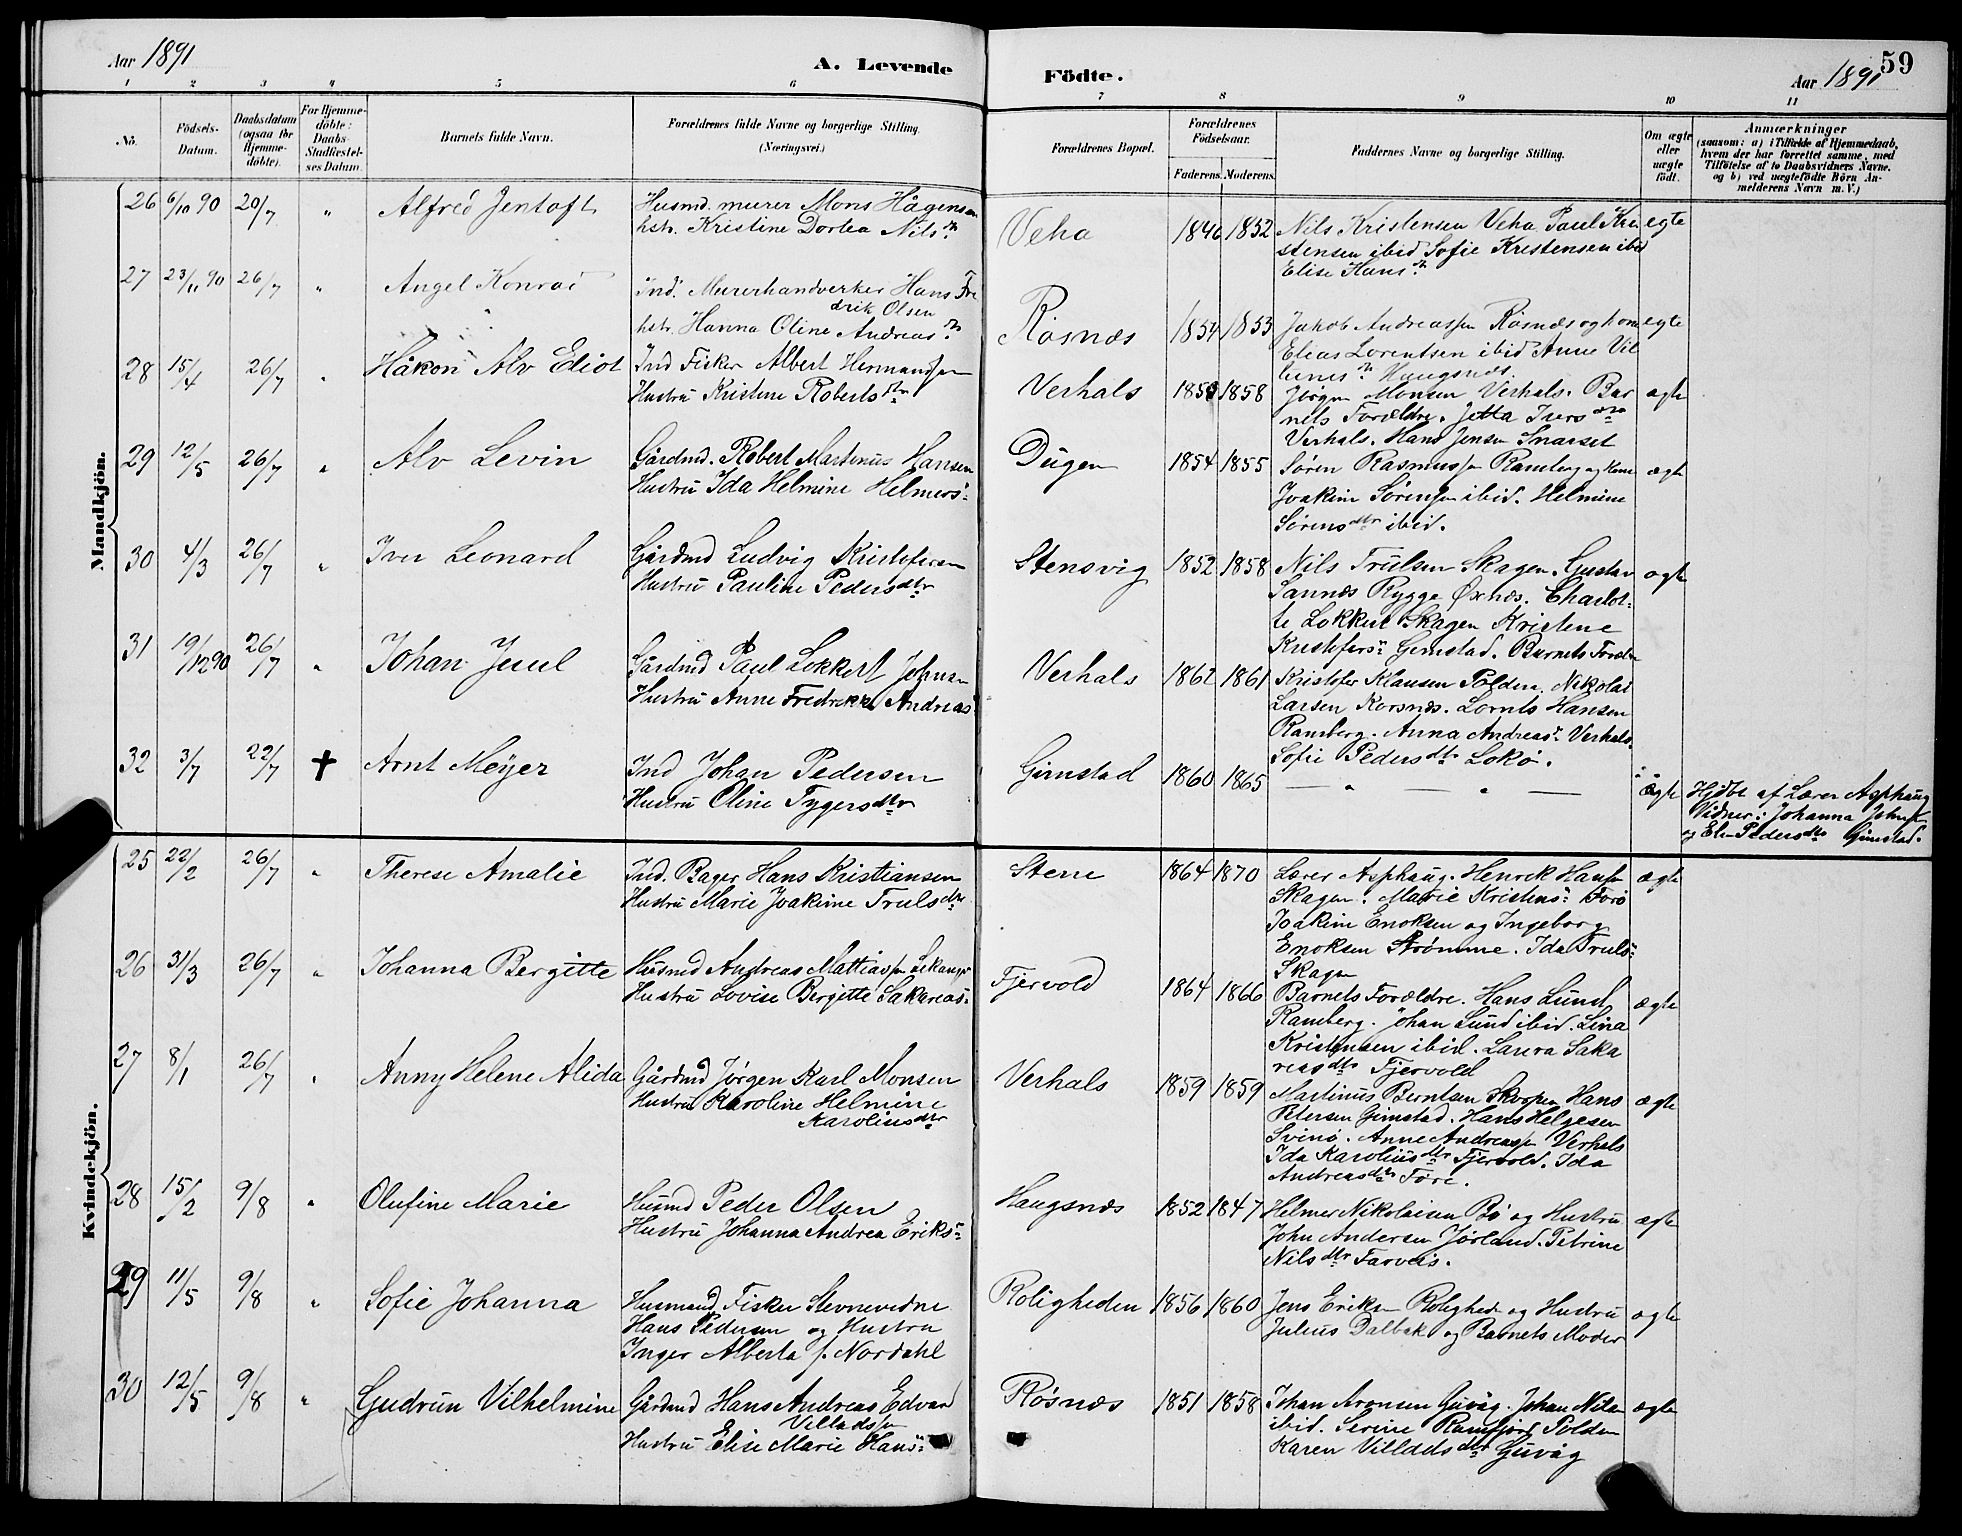 Aar 1891
A. Levende
Födte.
Aar 1891
59
1 2 3 4 5 6 7 8 9 10 11
No.
Födsels-
Datum.
Daabsdatum
(ogsaa for
Hjemme-
döbte).
For Hjemme-
döbte:
Daabs-
Stadfæstel-
ses Datum.
Barnets fulde Navn.
Forældrenes fulde Navne og borgerlige Stilling.
(Næringsvei.)
Forældrenes Bopæl.
Forældrenes
Födselsaar.
Faderens. Moderens.
Faddernes Navne og borgerlige Stilling.
Om ægte
eller
uægte
födt.
Anmærkninger
(saasom: a) i Tilfælde af Hjemmedaab,
hvem der har forrettet samme, med
Tilföielse af to Daabsvidners Navne.
og b) ved uægtefödte Börn An-
melderens Navn m. V.)
Mandkjön.
26 6/10 90 20/7 " Alfred Jentoft
Husmd. murer Mons Hågensen
hstr. Kristine Dortea Nilsdtr
Veha 1846 1852
Nils Kristensen Veha Paul Kri
stensen ibid Sofie Kristensen ibid
Elise Hansdtr
egte
27 23/11 90 26/7 " Angel Konrad
Ind. Murerhandverker Hans Fre
drik Olsen
hstr. Hanna Oline Andreasdtr
Røsnæs 1854 1853
Jakob Andreassen Røsnæs og kone
Elias Lorentsen ibid Anne Vil
Haugsnæs.
egte
28 15/4 26/7 " Håkon Alv Eliot
Ind Fisker Albert Hermansen
Hustru Kristine Robertsdtr
Verhals 1858
Jørgen Monsen Verhals. Bar
nets Forældre. Jetta Iversdtr
Verhals. Hans Jensen Snarset
ægte
29 12/5 26/7 " Alv Levin
Gårdmd. Robert Martinus Hansen
Hustru Ida Helmine Helmers:
Dugen 1854 1855
Søren Rasmussen Ramberg og Kone
Joakim Sørensen ibid. Helmine
Sørensdtr ibid.
ægte
30 4/3 26/7 " Iver Leonard
Gårdmd Ludvig Kristofersen
Hustru Pauline Pedersdtr
Stensvig 1852 1858
Nils Trulsen Skagen. Gustav
Sannæs Rygge Øxnæs. Charlot:
te Lokkert Skagen Kristine
Kristofers: Gimstad. Barnets Foræld
ægte
31 19/12 90 26/7 " Johan Juul
Gårdmd Paul Lokkert Johnsen
Hustru Anne Fredrikke Andreas:
Verhals 1862 1861
Kristofer Klausen Polden. Nikolai
Larsen Korsnæs. Lornts Hansen
Ramberg. Anna Andreas: Verhals.
Sofie Pedersdtr Lokø.
32 3/7 22/7 † Arnt Meÿer
Ind Johan Pedersen
Hustru Oline Tygersdtr
Gimstad 1860 1865
— " — " —
ægte
Hjdbt af Lærer Asphaug
Vidner: Johanna
og Pedersdtr Gimstad.
Kvindekjön.
25 22/2 26/7 " Therese Amalie
Ind. Bager Hans Kristiansen
Hustru Marie Joakime Trulsdtr
Stene 1864 1870
Lærer Asphaug. Henrik Hansen
Skagen. Marie Kristens: Forø
Joakim Enoksen og Ingeborg
Enoksen Strømme. Ida Truls:
Skagen
ægte
26 31/3 26/7 " Johanna Bergitte
Husmd Andreas Mattiassen Lekanger
Hustru Lovise Bergitte Sakarias:
Fjervold 1864 1866
Barnets Forældre. Hans Lund
Ramberg. Johan Lund ibid. Lina
Kristensen ibid. Laura Saka
riasdtr Fjervold
ægte
27 8/1 26/7 " Anny Helene Alida
Gårdmd Jørgen Karl Monsen
Hustru Karoline Helmine
Karoliusdtr
Verhals 1859 1859
Martinus Berntsen Skogøen Hans
Petersen Gimstad. Hans Helgesen
Svinø. Anne Andreassen Verhals
Ida Karoliusdtr Fjervold. Ida
Andreasdtr Føre.
ægte
28 15/2 9/8 " Olufine Marie
Husmd Peder Olsen
Hustru Johanna Andrea Eriks:
Haugsnæs 1852 1847
Helmer Nikolaisen Bø og Hustru
John Andersen Jørland. Petrine
Nilsdtr Farveis.
ægte
29 11/5 9/8 " Sofie Johanna
Husmand Fisker Stevnevidne
Hans Pedersen og Hustru
Inger Alberta f. Nordahl
Roligheden 1856 1860
Jens Eriksen Roligheden og Hustru
Julius Dalbak og Barnets Moder
ægte
30 12/5 9/8 " Gudrun Vilhelmine
Gårdmd Hans Andreas Edvard
Villadsen
Hustru Elise Marie Hans:
Røsnæs 1851 1858
Johan Aronsen Guvåg. Johan Nilsen
ibid. Serine Ramfjord Polden
Karen Villadsdtr Guvåg
ægte